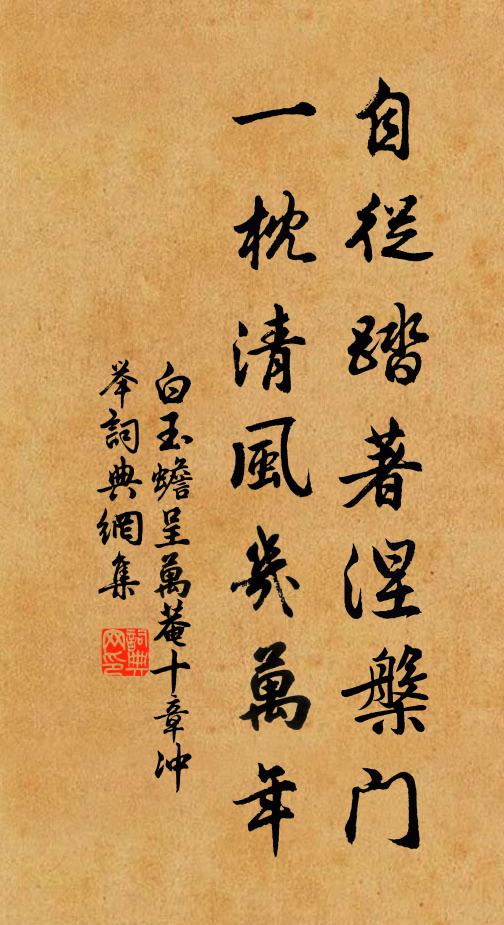 自從踏著涅槃門
一枕清風幾萬年
白玉蟾呈萬菴十章冲
举詞典網集
詞典网印